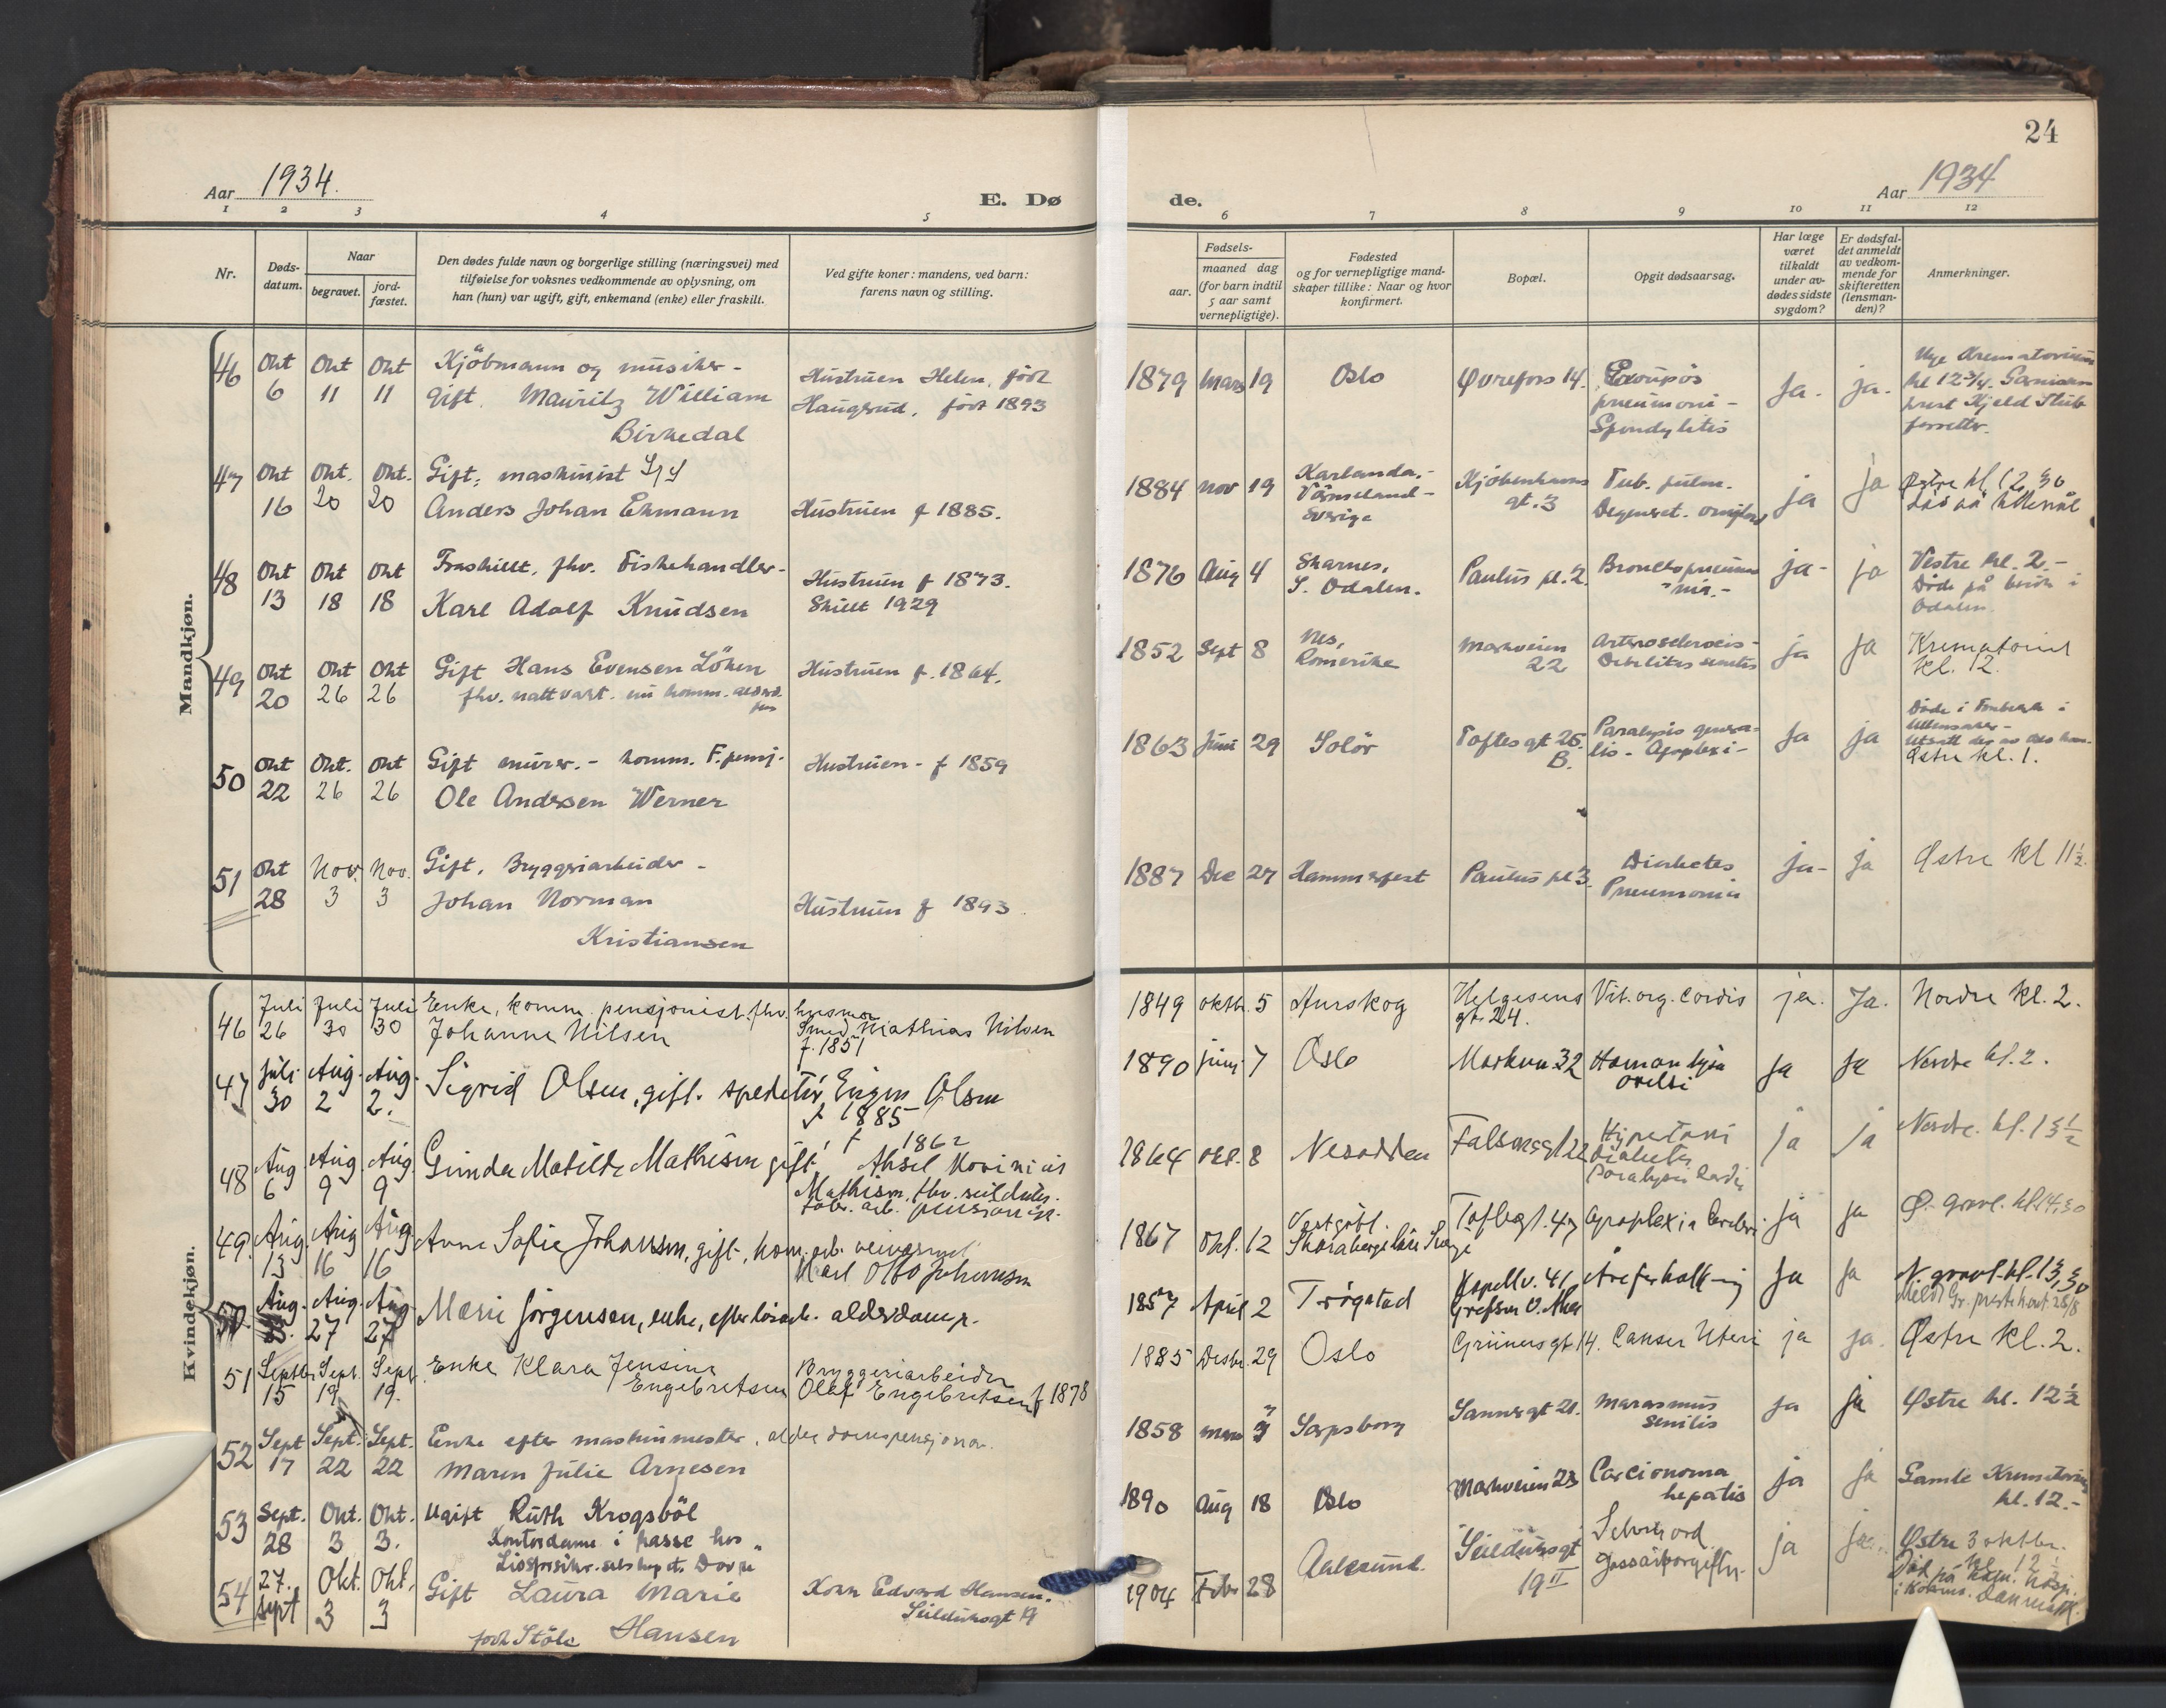 24
Aar 1934.
E. Dø
de.
Aar 1934
1 2 3 4 5
6 7 8 9 10 11 12
Nr.
Døds-
datum.
Naar
begravet.
jord-
fæstet.
Den dødes fulde navn og borgerlige stilling (næringsvei) med
tilføielse for voksnes vedkommende av oplysning, om
han (hun) var ugift, gift, enkemand (enke) eller fraskilt.
Ved gifte koner: mandens, ved barn:
farens navn og stilling.
Fødsels-
aar.
maaned dag
(for barn indtil
5 aar samt
vernepligtige).
Fødested
og for vernepligtige mand-
skaper tillike: Naar og hvor
konfirmert.
Bopæl.
Opgit dødsaarsag.
Har læge
været
tilkaldt
under av-
dødes sidste
sygdom?
Er dødsfal-
det anmeldt
av vedkom-
mende for
skifteretten
(lensman-
den)?
Anmerkninger.
Mandkjøn.
46 Okt 6 Okt 11 Okt 11
Kjöbmann og musiker -
gift. Mauritz William
Birkedal
Hustruen Helen, født
Haugsrud, født 1893
1879 Mars 19 Oslo Øvrefoss 14.
pneumoni -
Spondylitis
Ja. ja.
Nye Krematorium
kl 12 3/4. Garnisons
prest Kjeld Stub
forretter.
47 Okt 16 Okt. 20 Okt. 20
Gift, maskinist
Anders Johan Ekmann
Hustruen f 1885.
1884 Nov 19
Karlanda, -
Värmeland -
Sverige
Kjöbenhavns
gt. 3
Tub. pulm.
Degenerat.
ja ja
Østre kl. 12,30
48 Okt 13 Okt 18 Okt 18
Fraskillt, fhv. Fiskehandler -
Karl Adolf Knudsen
Hustruen f 1873.
Skillt 1929
1876 Aug 4
Skarnes,
S. Odalen.
Paulus pl. 2.
Bronchopneumo
nia. -
ja - ja
Vestre kl. 2. -
Döde på besök i
Odalen.
49 Okt 20 Okt 26 Okt 26
Gift Hans Evensen Löken
fhv. nattvakt. nu komm. alderd.
Hustruen f. 1864.
1852 Sept 8
Nes,
Romerike
Markveien
22
Arterosclerosis -
Debilitas senilis
ja ja
Krematoriet
kl. 12.
50 Okt 22 Okt. 26 Okt 26
Gift murer. - komm. F. pensj.
Ole Andersen Werner
Hustruen - f 1859
1863 Juni 29 Solör
Toftes gt 26.
B.
Paralysis genera-
lis - Apoplexi -
Ja ja
Østre kl. 1.
51 Okt 28 Nov. 3 Nov. 3
Gift, Bryggeriarbeider -
Johan Norman
Kristiansen
Hustruen f 1893.
1887 Dec 27 Hammerfest Paulus pl 3.
Diabetes
Pneumonia
ja - ja Østre kl 11 1/2.
Kvindekjøn.
46 Juli 26 Juli 30 Juli 30
Enke, komm. pensjonist. fhv.
Johanne Nilsen
Smed Mathias Nilsen
f. 1851
1849 oktb. 5 Aurskog
Helgesens
gt. 24.
Vit. org. cordis ja. Ja. Nordre kl. 2.
47 Juli 30 Aug. 2 Aug. 2.
Sigrid Olsen, gift. speditör Eugen Olsen
f 1885
1890 juni 7 Oslo Markvn 32 ja ja Nordre kl. 2.
48 Aug 6 Aug. 9 Aug. 9
Gunda Matilde Mathisen gift,
f 1862
Aksel
Mathisen, fhv. seilduks.
fabr. arb. pensionist.
1864 okt. 8 Nesodden
Hypertoni
Diabetes
Paralysis cordis
ja ja Nordre. kl. 13 1/2
49. Aug. 13 Aug 16 Aug. 16
Anna Sofie Johansen, gift, kom. arb. veivesenet
Karl Otto Johansen
1867 Okt. 12
Vestgötl.
Skaraborgs län Sverige
Toftesgt. 47 Apoplexia cerebri ja ja Ø. gravl. kl. 14,30
50. Aug. 23. Aug. 27 Aug. 27
Marie Jörgensen, enke, efter lösarb. alderdomsp.
1857 April 2 Trögstad
Kapellv. 41,
Grefsen V. Aker
Åreforkalkning ja ja
N. gravl. kl. 13,30
Meldt Gr. prestekont. 28/8
51 Septbr 15 Sept. 19 Sept. 19.
Enke Klara Jensine
Engebretsen
Bryggeriarbeider
Olaf Engebretsen f 1878
1885 Desbr. 29 Oslo Grüners gt 14. Cancer Uteri ja ja. Østre kl. 2.
52 Sept 17 Sept. 22 Sept. 22
Enke efter maskinmester, alderdomspensjonær.
Maren Julie Arnesen
1858 mars 3 Sarpsborg Sannergt 21.
Marasmus
Senilis
ja ja Østre kl. 12 1/2
53 Sept. 28 Okt. 3 Okt. 3.
Ugift Ruth Krogsböl
Kontordame i kasse hos
Livsforsikr. selskapet Dovre
1890 Aug 18 Oslo Markveien 23
Carcionoma
hepatis
ja ja
Gamle Krematorium
kl. 12. -
54 27. sept Okt. 3 Okt. 3
Gift Laura Marie
født Stöle Hansen
Korn Edvard Hansen.
Seilduksgt 19
1904 Febr 28 Aalesund.
Seilduksgt
19 II
Selvmord
Gassforgiftn.
ja ja.
Østre 3 oktbr.
kl. 12 1/2
Död på kom. hosp.
i Köbenh. Danmark.